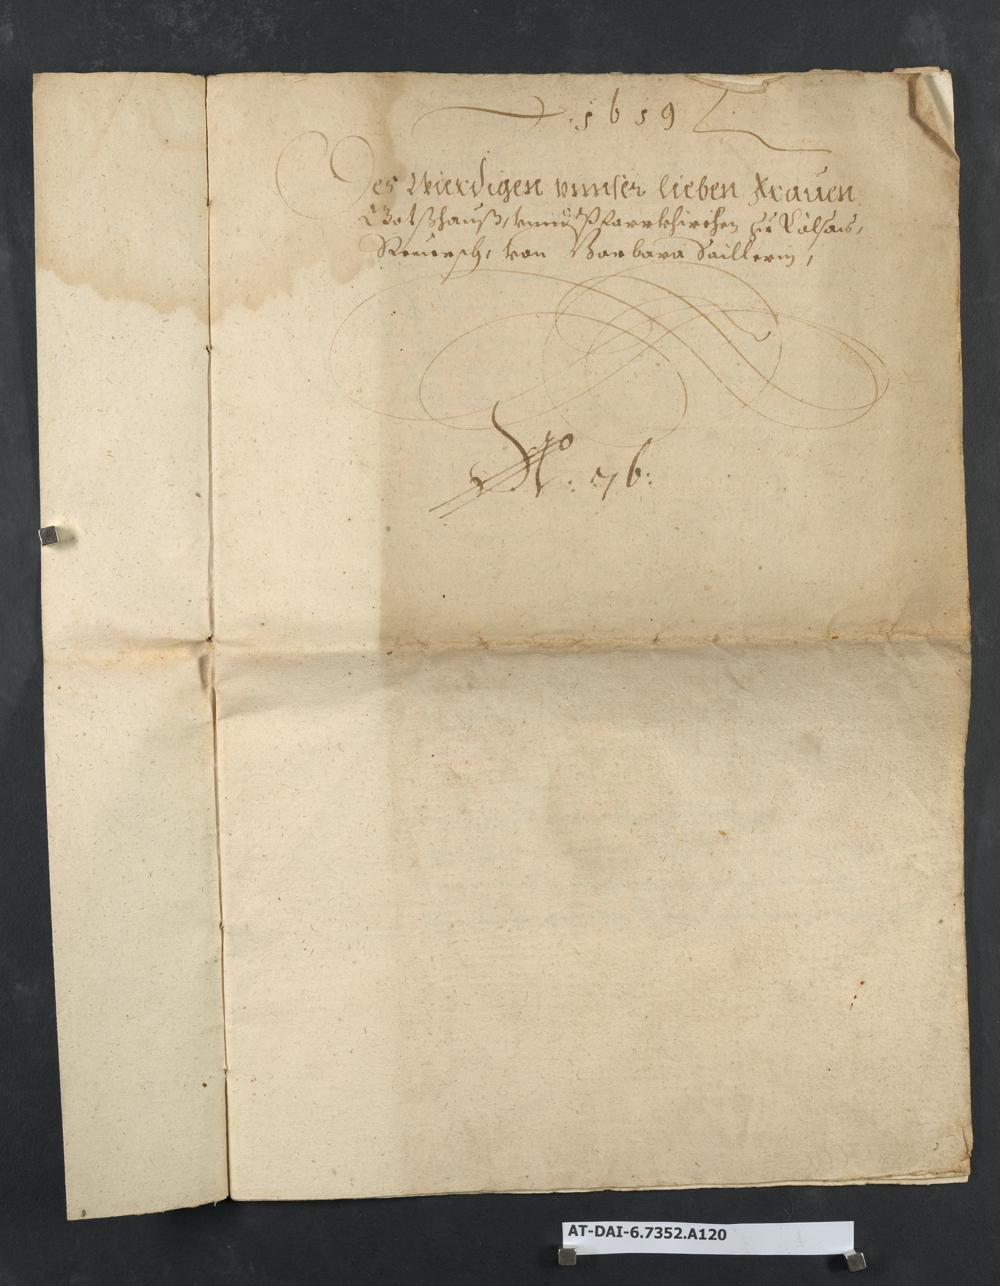 1619
Des Wierdigen vnnser lieben Frauen
Gotshauß, vnnd Pfarrkhirchen zu Välsais,
Reuersch, von Barbara Saillerin,
No. 76:
AT-DAI-6.7352.A120